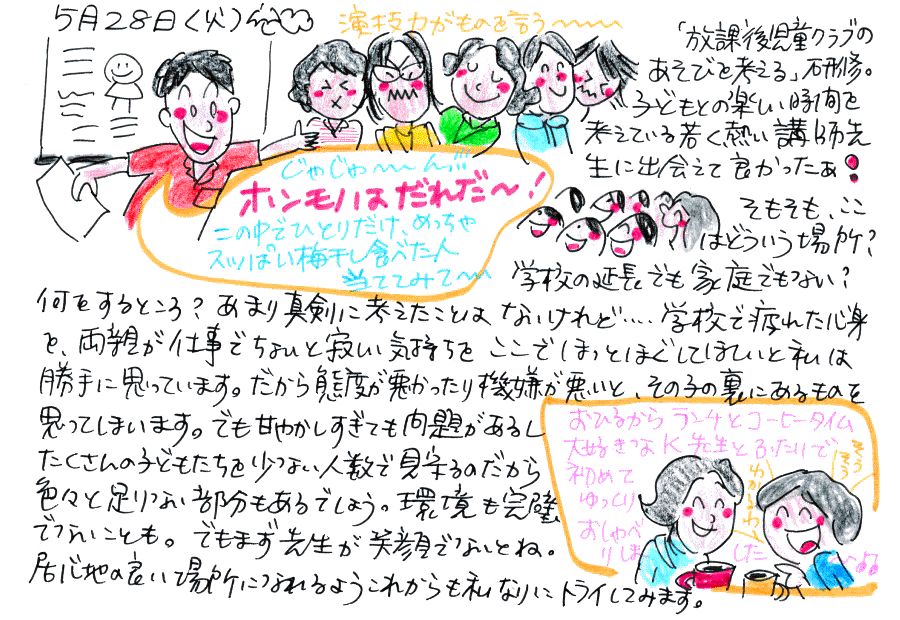 5月28日(火)
演技力がものを言う〜〜〜
「放課後児童クラブの
あそびを考える」研修。
子どもとの楽しい時間を
考えている若く熱い講師先
生に出会えて良かったぁ!
じゃじゃ〜〜ん!!!
ホンモノはだれだ〜!
この中でひとりだけ、めっちゃ
スッぱい梅干し食べた人
当ててみて〜〜
そもそも、ここ
はどういう場所?
学校の延長でも家庭でもない?
何をするところ? あまり真剣に考えたことは ないけれど‥‥学校で疲れた心身
を、両親が仕事でちょいと寂しい気持ちを ここでほっとほぐしてほしいと私は
勝手に思っています。だから態度が悪かったり機嫌が悪いと、その子の裏にあるものを
思ってしまいます。でも甘やかしすぎても問題があるし
たくさんの子どもたちを少ない人数で見守るのだから
色々と足りない部分もあるでしょう。環境も完璧
でないことも。でもまず先生が笑顔でないとね。
居心地の良い場所になれるようこれからも私なりにトライしてみます。
おひるから ランチとコーヒータイム
大好きなK先生とふたりで
初めて
ゆっくり
おしゃべ
りしま した 〜♪♪
わかるわ〜
そうそう